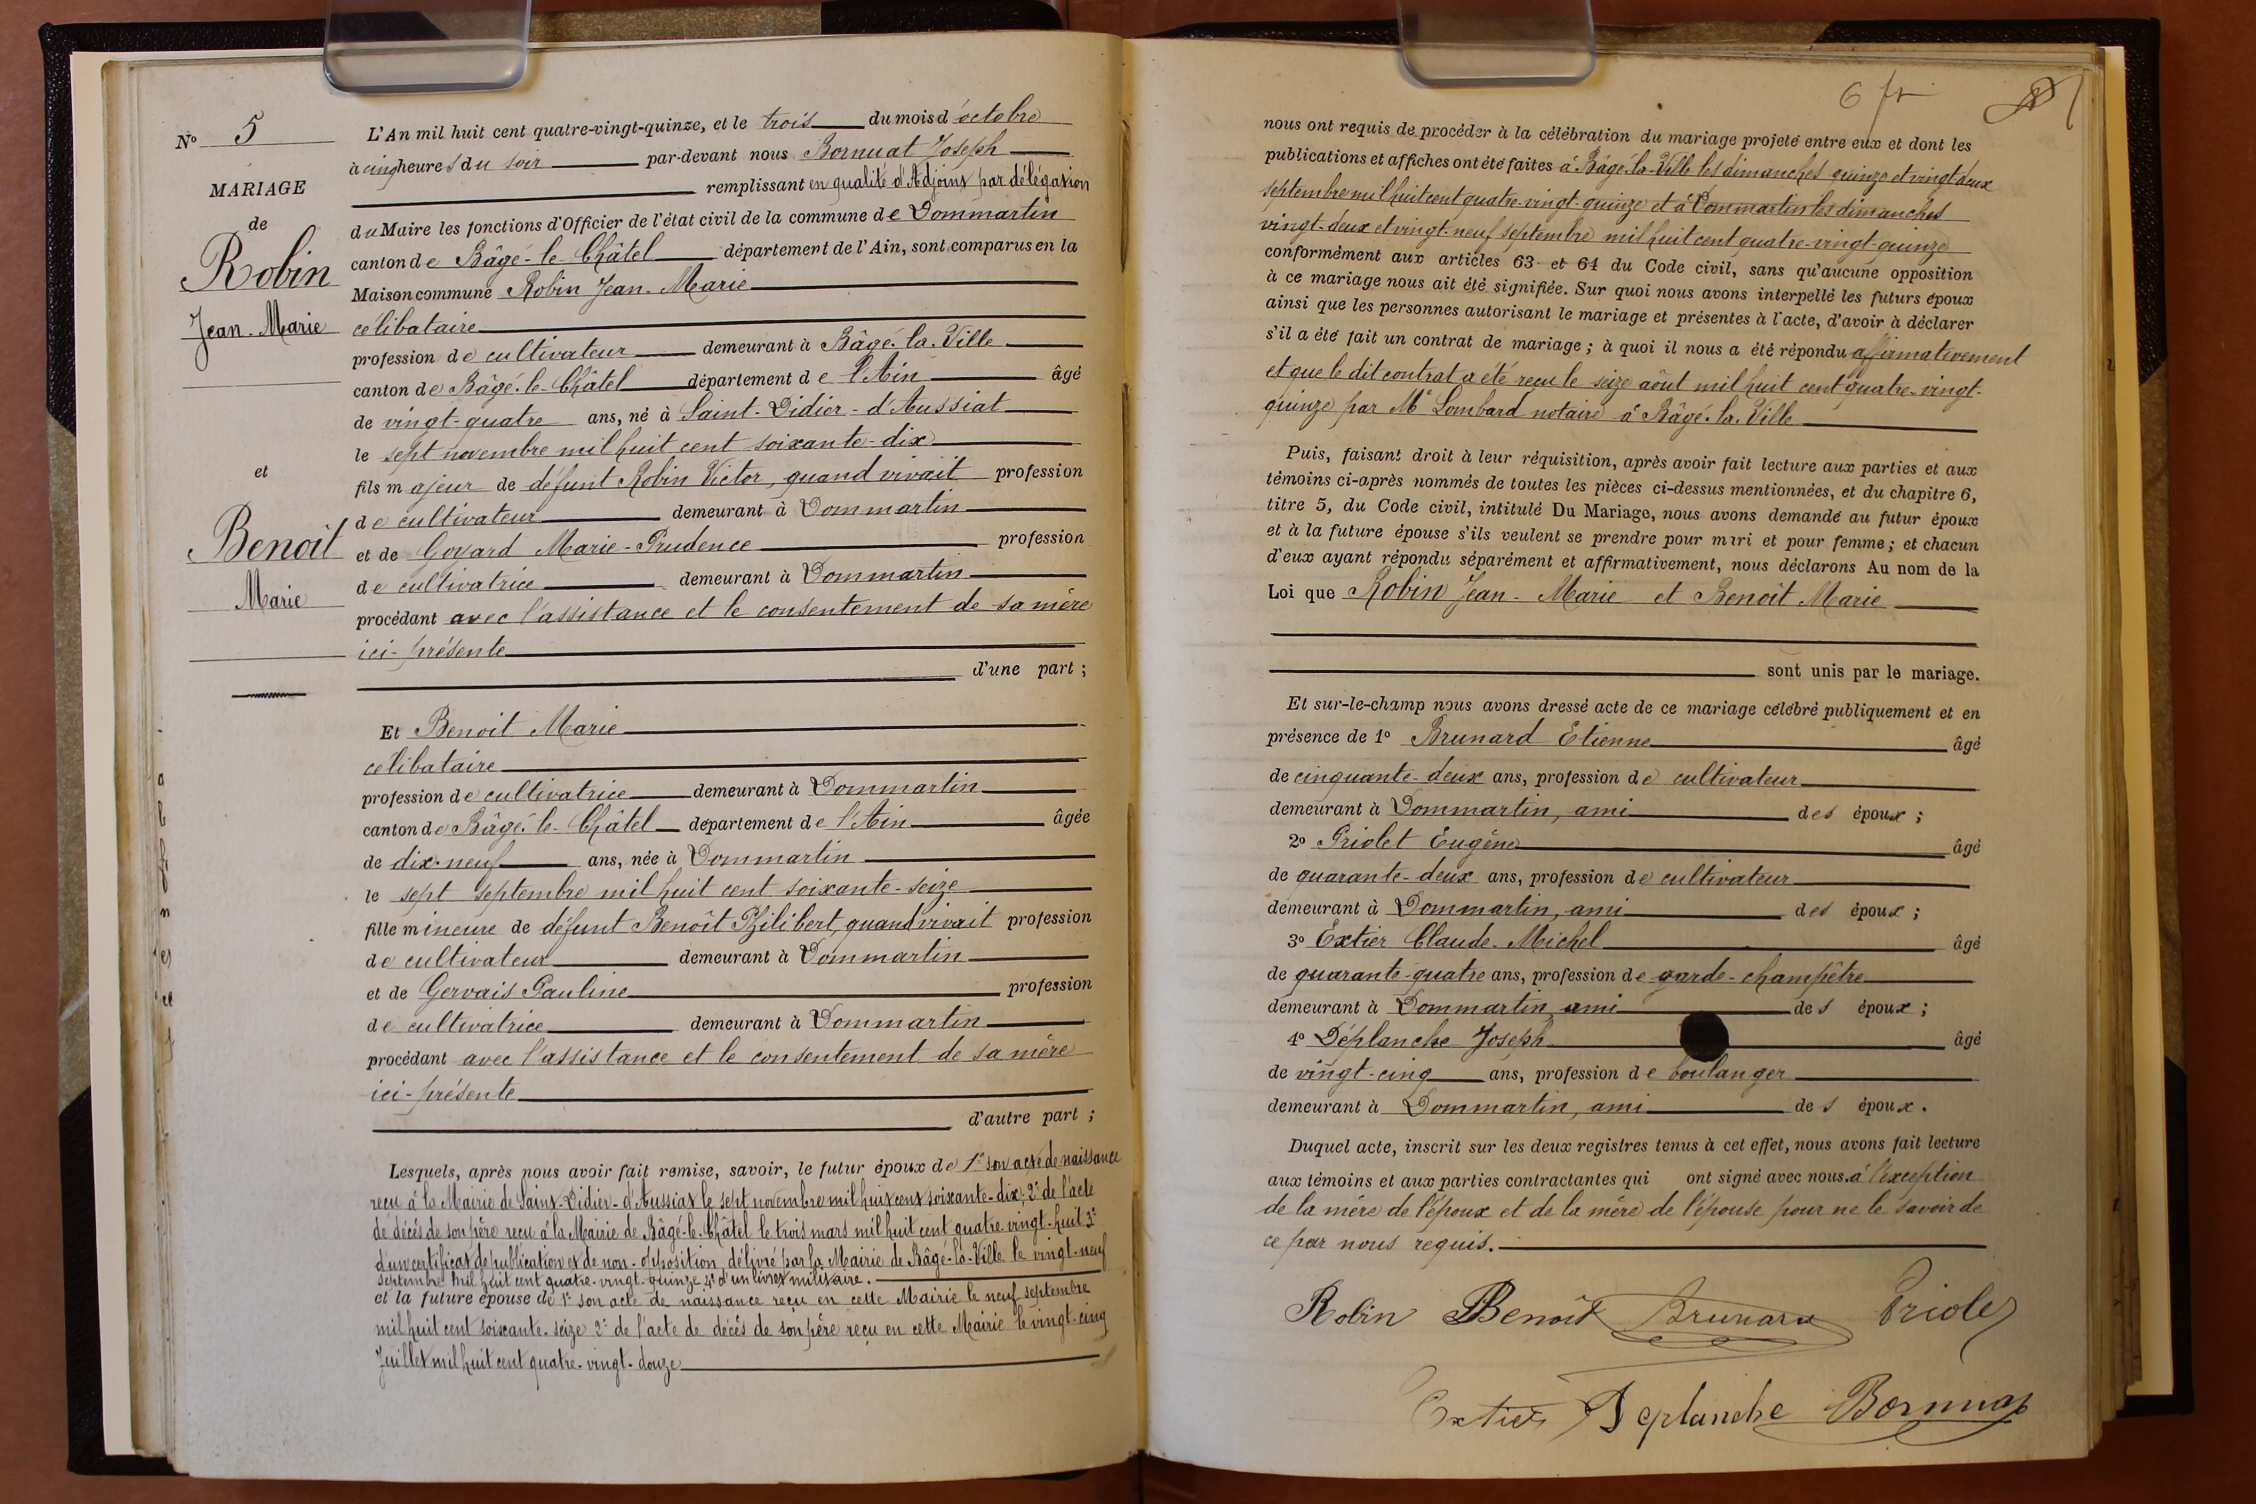 N° 5
MARIAGE
de
Robin
Jean-Marie
et
Benoît
Marie
L'An mil huit cent quatre-vingt-quinze, et le trois du mois d'octobre
à cinq heures du soir par-devant nous Bornuat Joseph
remplissant en qualité d'Adjoint par délégation
du Maire les fonctions d'Officier de l'état civil de la commune de Dommartin
canton de Bâgé-le-Châtel département de l'Ain, sont comparus en la
Maison commune Robin Jean-Marie
célibataire
profession de cultivateur demeurant à Bâgé-la-Ville
canton de Bâgé-le-Châtel département de l'Ain âgé
de vingt-quatre ans, né à Saint-Didier-d'Aussiat
le sept novembre mil huit cent soixante-dix
fils majeur de défunt Robin Victor, quand vivait profession
de cultivateur demeurant à Dommartin
et de Goyard Marie-Prudence profession
de cultivatrice demeurant à Dommartin
procédant avec l'assistance et le consentement de sa mère
ici-présente
d'une part ;
Et Benoit Marie
célibataire
profession de cultivatrice demeurant à Dommartin
canton de Bâgé-le-Châtel département de l'Ain âgée
de dix-neuf ans, née à Dommartin
le sept septembre mil huit cent soixante-seize
fille mineure de défunt Benoît Philibert, quand vivait profession
de cultivateur demeurant à Dommartin
et de Gervais Pauline profession
de cultivatrice demeurant à Dommartin
procédant avec l'assistance et le consentement de sa mère
ici-présente
d'autre part ;
Lesquels, après nous avoir fait remise, savoir, le futur époux de 1° son acte de naissance
reçu à la Mairie de Saint-Didier-d'Aussiat le sept novembre mil huit cent soixante-dix; 2° de l'acte
de décès de son père reçu à la Mairie de Bâgé-le-Châtel le trois mars mil huit cent quatre-vingt-huit 3°
d'un certificat de publication et de non-opposition délivré par la Mairie de Bâgé-la-Ville le vingt-neuf
septembre mil huit cent quatre-vingt-quinze 4° d'un livret militaire.
et la future épouse de 1° son acte de naissance reçu en cette Mairie le neuf septembre
mil huit cent soixante-seize 2° de l'acte de décès de son père reçu en cette Mairie le vingt-cinq
Juillet mil huit cent quatre-vingt-douze
6 ft
nous ont requis de procéder à la célébration du mariage projeté entre eux et dont les
publications et affiches ont été faites à Bâgé-la-Ville les dimanches quinze et vingt deux
septembre mil huit cent quatre-vingt-quinze et à Dommartin les dimanches
vingt-deux et vingt-neuf septembre mil huit cent quatre-vingt-quinze
conformément aux articles 63 et 64 du Code civil, sans qu'aucune opposition
à ce mariage nous ait été signifiée. Sur quoi nous avons interpellé les futurs époux
ainsi que les personnes autorisant le mariage et présentes à l'acte, d'avoir à déclarer
s'il a été fait un contrat de mariage ; à quoi il nous a été répondu affirmativement
et que le dit contrat a été reçu le seize août mil huit cent quatre-vingt-
quinze par Me Lombard notaire à Bâgé-la-Ville
Puis, faisant droit à leur réquisition, après avoir fait lecture aux parties et aux
témoins ci-après nommés de toutes les pièces ci-dessus mentionnées, et du chapitre 6,
titre 5, du Code civil, intitulé Du Mariage, nous avons demandé au futur époux
et à la future épouse s'ils veulent se prendre pour mari et pour femme ; et chacun
d'eux ayant répondu séparément et affirmativement, nous déclarons Au nom de la
Loi que Robin Jean-Marie et Benoît Marie
sont unis par le mariage.
Et sur-le-champ nous avons dressé acte de ce mariage célébré publiquement et en
présence de 1° Brunard Etienne âgé
de cinquante-deux ans, profession de cultivateur
demeurant à Dommartin, ami des époux ;
2° Priolet Eugène âgé
de quarante-deux ans, profession de cultivateur
demeurant à Dommartin, ami des époux ;
3° Extier Claude-Michel âgé
de quarante-quatre ans, profession de garde-champêtre
demeurant à Dommartin ami des époux ;
4° Déplanche Joseph âgé
de vingt-cinq ans, profession de boulanger
demeurant à Dommartin, ami des époux.
Duquel acte, inscrit sur les deux registres tenus à cet effet, nous avons fait lecture
aux témoins et aux parties contractantes qui ont signé avec nous. à l'exception
de la mère de l'époux et de la mère de l'épouse pour ne le savoir de
ce par nous requis.
Robin Benoît Brunard Priolet
Extier Deplanche Bornuat